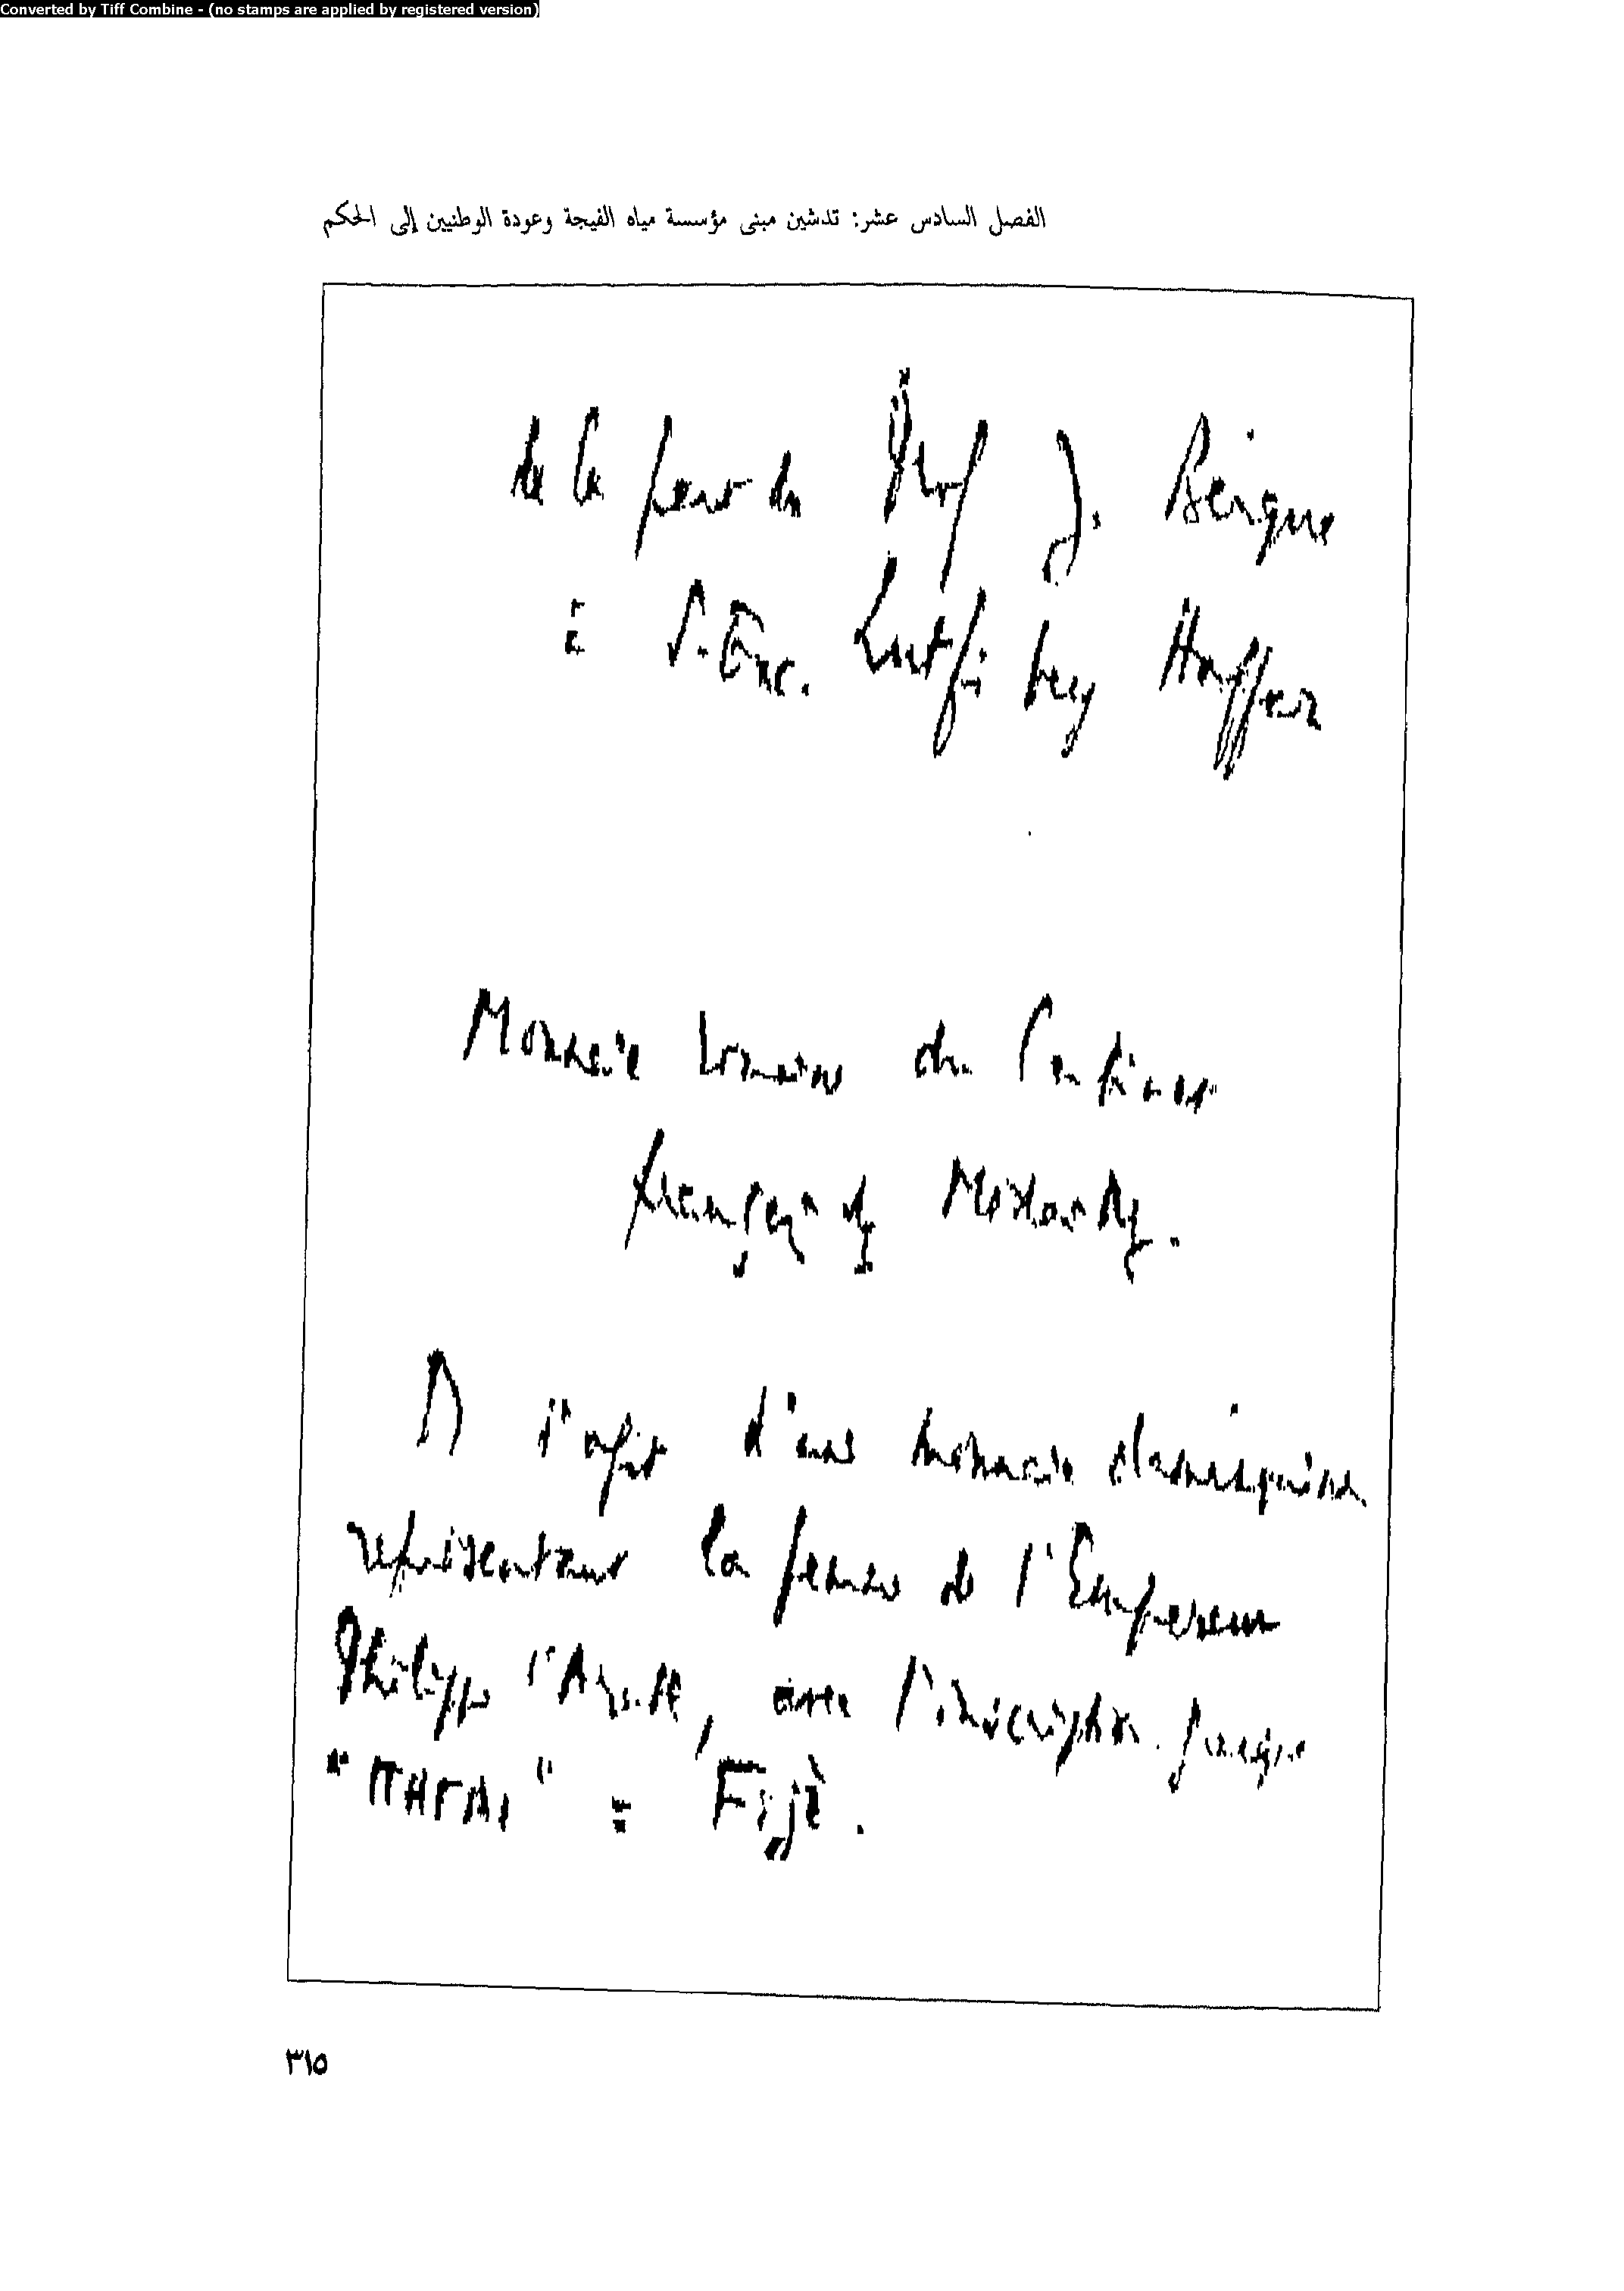 Converted by Tiff Combine - (no stamps are applied by registered version)
الفصل السادس عشر: تدشين مبنى مؤسسة مياه الفيجة وعودة الوطنيين إلى الحكم
de la part du Prof J. Berque
à S. Exc. Lutfi bey Haffar
Monnaie
français
A d'une monnaie damasquine
représentant la femme de l'Empereur
Philippe l'Arabe, avec l'inscription grecque
"ΠΗΓΑΙ" = Fijè.
٣١٥